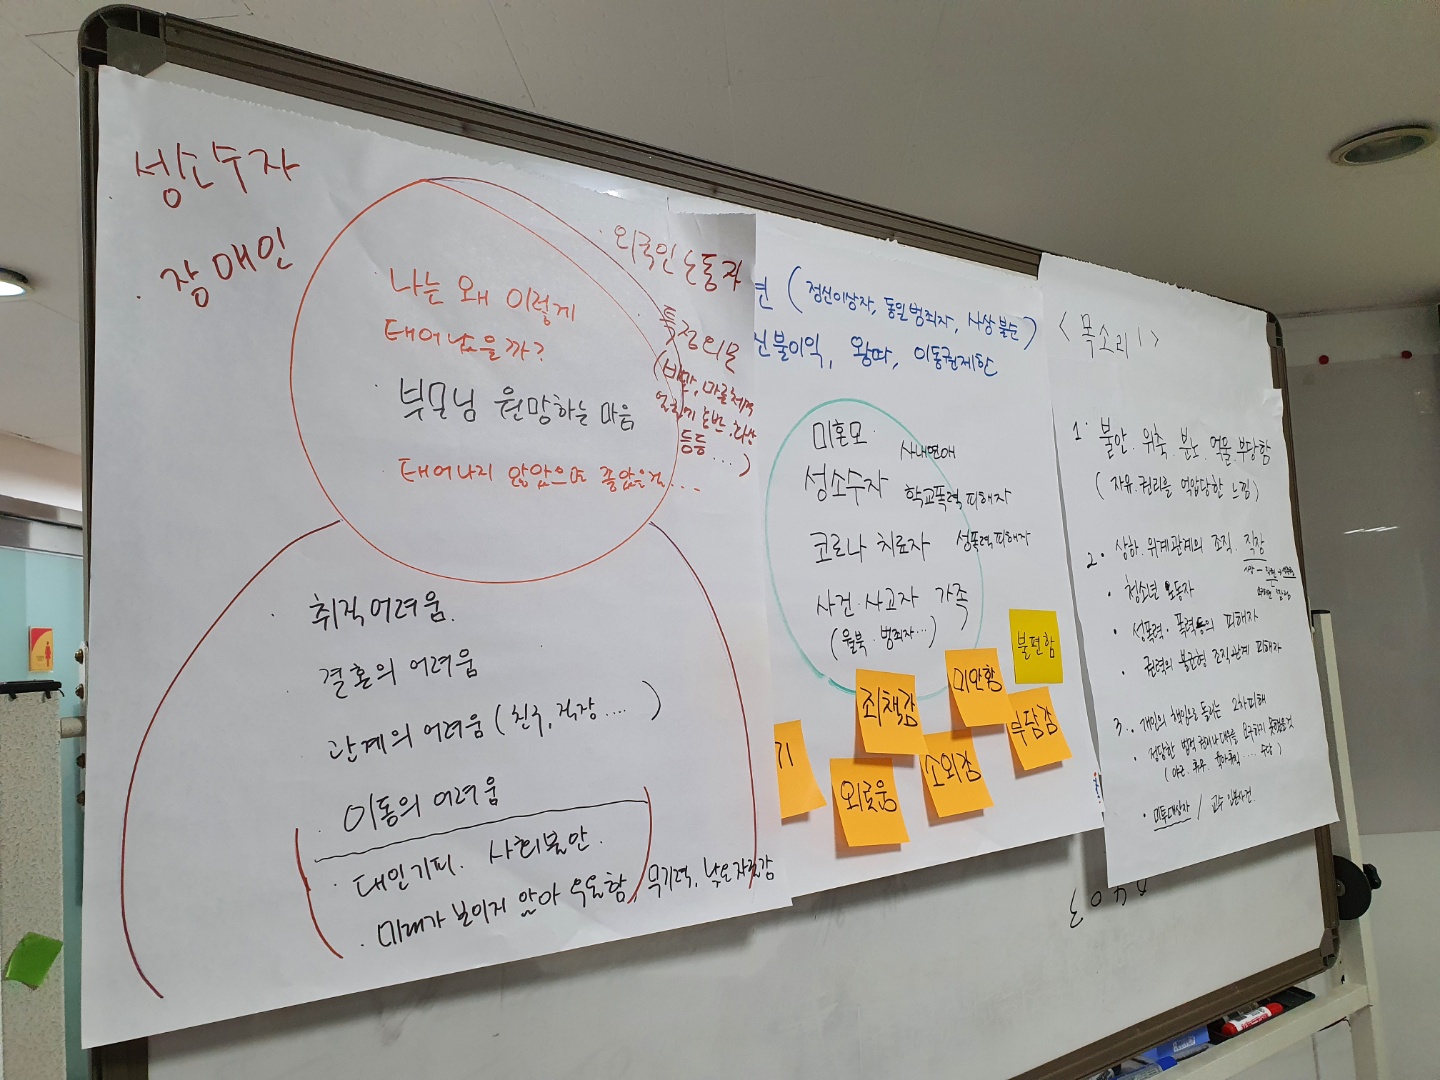 성소수자
· 장애인
· 나는 왜 이렇게
태어났을까?
· 부모님 원망하는 마음
· 태어나지 않았으면 좋았을걸....
· 외국인노동자
· 특정외모
(비만, 마른체격
등등....)
· 취직어려움.
· 결혼의 어려움
· 관계의 어려움 (친구, 직장....)
· 이동의 어려움
· 대인기피. 사회불안.
· 미래가 보이지 않아 우울함, 무기력, 낮은자존감
(정신이상자, 동일범죄자, 사상불순)
불이익, 왕따, 이동권제한
미혼모 사내연애
성소수자 학교폭력피해자
코로나 치료자 성폭력피해자
사건·사고자 가족
(월북·범죄자...)
불편함
미안함
죄책감
부담감
소외감
외로움
기
<목소리1>
1. 불안. 위축. 분노. 억울. 부당함
(자유.권리를 억압당한 느낌)
2. 상하.위계관계의 조직. 직장
· 청소년 노동자
· 성폭력. 폭력등의 피해자
· 권력의 불균형 조직관계 피해자
3. 개인의 책임으로 돌리는 2차피해
· 정당한 법적 권리나 대우를 요구하지 못했을것
· 미투대상자 / 교수 인분사건